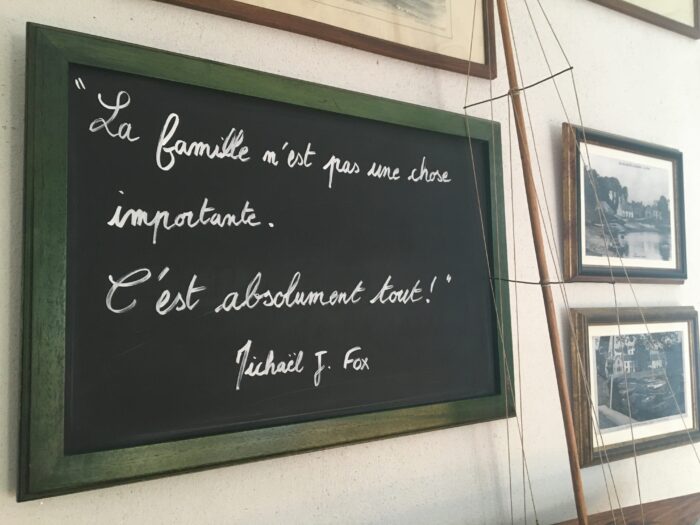 "La famille n'est pas une chose
importante.
C'est absolument tout!"
Michaël J. Fox